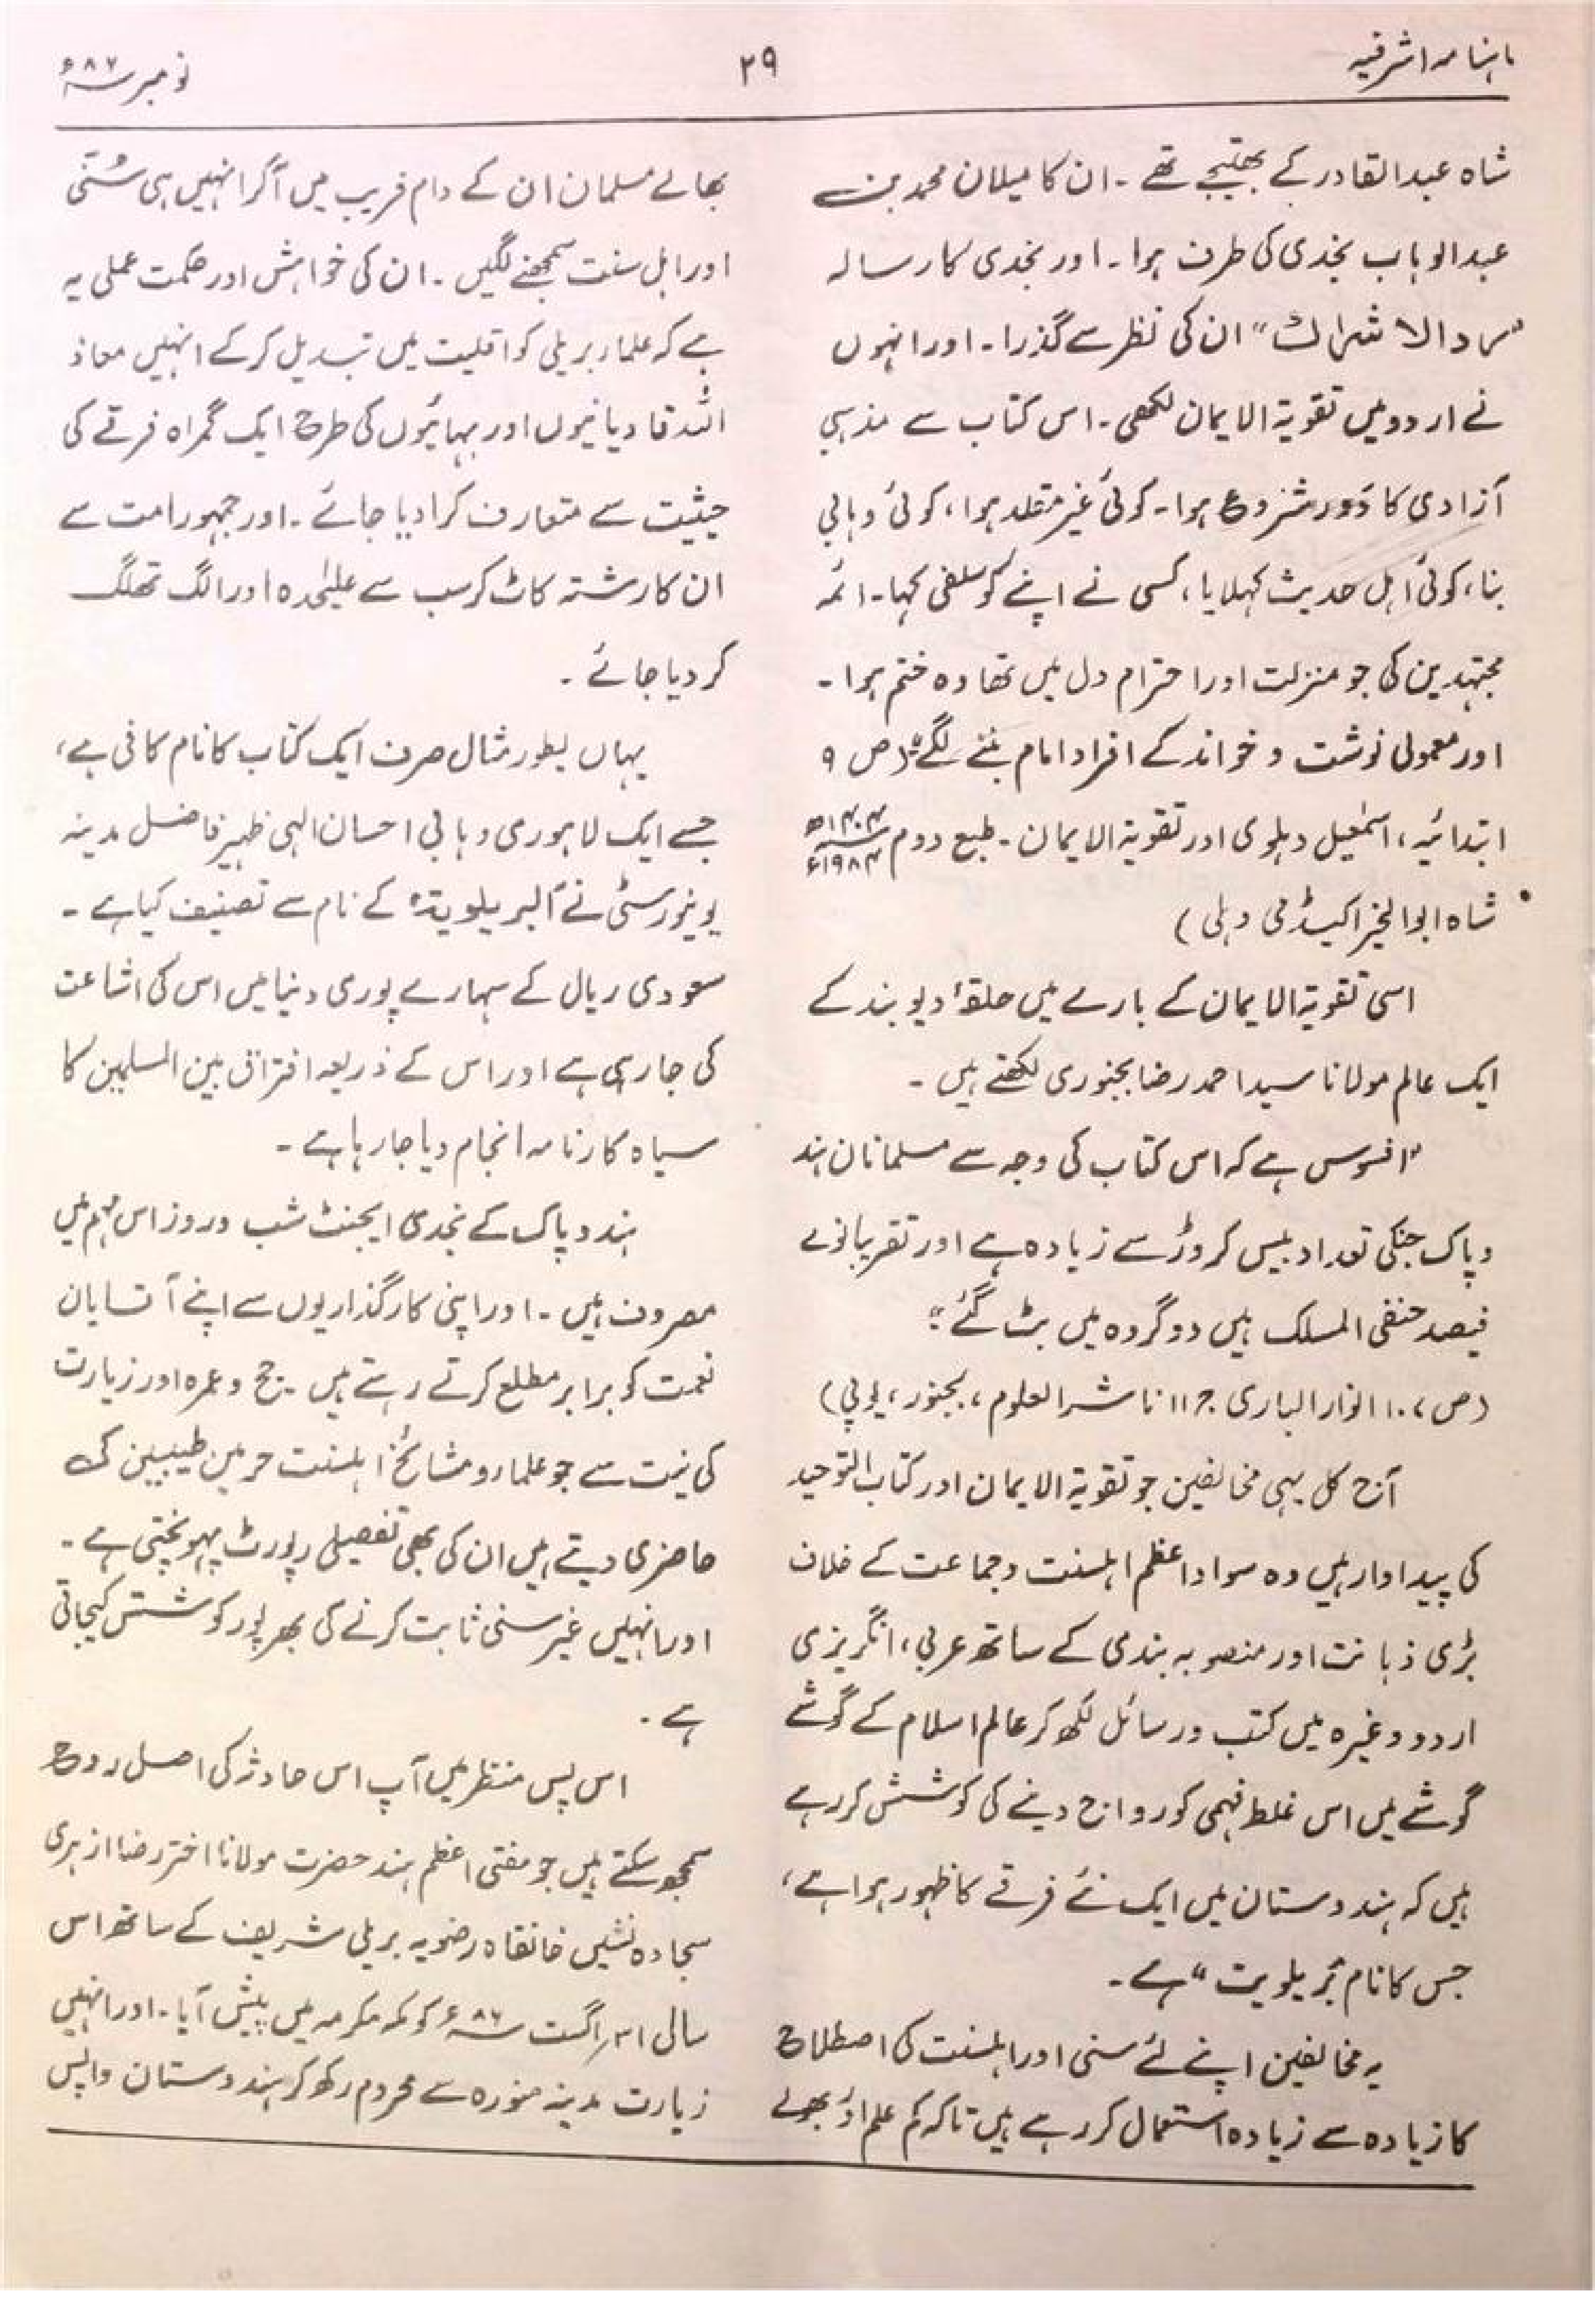 ماہنامہ اشرفیہ
۲۹
نومبر ۸۷ء
شاہ عبدالقادر کے بھتیجے تھے ۔ ان کا میلان محمد بن
عبدالوہاب نجدی کی طرف ہوا ۔ اور نجدی کا رسالہ
”ردالاشراک“ ان کی نظر سے گذرا ۔ اور انہوں
نے اردو میں تقویۃ الایمان لکھی ۔ اس کتاب سے مذہبی
آزادی کا دَور شروع ہوا ۔ کوئی غیر مقلد ہوا ، کوئی وہابی
بنا ، کوئی اہل حدیث کہلایا ، کسی نے اپنے کو سلفی کہا ۔ ائمہ
مجتہدین کی جو منزلت اور احترام دل میں تھا وہ ختم ہوا ۔
اور معمولی نوشت و خواند کے افراد امام بننے لگے“ (ص ۹
ابتدائیہ ، اسمٰعیل دہلوی اور تقویۃ الایمان ۔ طبع دوم ۱۴۰۴ھ ۱۹۸۴ء
شاہ ابوالخیر اکیڈمی دہلی )
اسی تقویۃ الایمان کے بارے میں حلقۂ دیوبند کے
ایک عالم مولانا سید احمد رضا بجنوری لکھتے ہیں ۔
”افسوس ہے کہ اس کتاب کی وجہ سے مسلمانان ہند
و پاک جنکی تعداد بیس کروڑ سے زیادہ ہے اور تقریبا نوے
فیصد حنفی المسلک ہیں دو گروہ میں بٹ گئے“
(ص ۱۰۷ انوار الباری ج ۱۱ ناشر العلوم ، بجنور ، یوپی )
آج کل یہی مخالفین جو تقویۃ الایمان اور کتاب التوحید
کی پیداوار ہیں وہ سواد اعظم اہلسنت و جماعت کے خلاف
بڑی ذہانت اور منصوبہ بندی کے ساتھ عربی ، انگریزی
اردو وغیرہ میں کتب و رسائل لکھ کر عالم اسلام کے گوشے
گوشے میں اس غلط فہمی کو رواج دینے کی کوشش کر رہے
ہیں کہ ہندوستان میں ایک نئے فرقے کا ظہور ہوا ہے ،
جس کا نام ”بریلویت“ ہے ۔
یہ مخالفین اپنے لئے سنی اور اہلسنت کی اصطلاح
کا زیادہ سے زیادہ استعمال کر رہے ہیں تاکہ کم علم اور بھولے
بھالے مسلمان ان کے دام فریب میں آکر انہیں ہی سُنّی
اور اہل سنت سمجھنے لگیں ۔ ان کی خواہش اور حکمت عملی یہ
ہے کہ علماء بریلی کو اقلیت میں تبدیل کرکے انہیں معاذ
اللہ قادیانیوں اور بہائیوں کی طرح ایک گمراہ فرقے کی
حیثیت سے متعارف کرا دیا جائے ۔ اور جمہور امت سے
ان کا رشتہ کاٹ کر سب سے علیٰحدہ اور الگ تھلگ
کر دیا جائے ۔
یہاں بطور مثال صرف ایک کتاب کا نام کافی ہے ،
جسے ایک لاہوری وہابی احسان الہی ظہیر فاضل مدینہ
یونیورسٹی نے ”البریلویۃ“ کے نام سے تصنیف کیا ہے ۔
سعودی ریال کے سہارے پوری دنیا میں اس کی اشاعت
کی جارہی ہے اور اس کے ذریعہ افتراق بین المسلمین کا
سیاہ کارنامہ انجام دیا جا رہا ہے ۔
ہند و پاک کے نجدی ایجنٹ شب و روز اس مہم میں
مصروف ہیں ۔ اور اپنی کارگذاریوں سے اپنے آقایان
نعمت کو برابر مطلع کرتے رہتے ہیں ۔ حج و عمرہ اور زیارت
کی نیت سے جو علماء و مشائخ اہلسنت حرمین طیبین کی
حاضری دیتے ہیں ان کی بھی تفصیلی رپورٹ پہونچتی ہے ۔
اور انہیں غیر سنی ثابت کرنے کی بھرپور کوشش کیجاتی
ہے ۔
اس پس منظر میں آپ اس حادثہ کی اصل روح
سمجھ سکتے ہیں جو مفتی اعظم ہند حضرت مولانا اختر رضا ازہری
سجادہ نشیں خانقاہ رضویہ بریلی شریف کے ساتھ اس
سال ۳۱ / اگست ۸۶ء کو مکہ مکرمہ میں پیش آیا ۔ اور انہیں
زیارت مدینہ منورہ سے محروم رکھ کر ہندوستان واپس